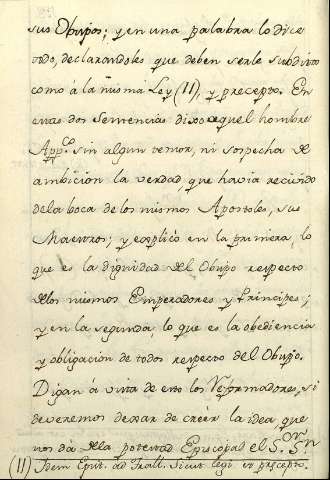 sus Obispos; y en una palabra lo dice
todo, declarandoles que deben serle subditos
como à la misma Ley (11), y precepto. En
estas dos Sentencias dixo aquel hombre
App.co sin algun temor, ni sospecha de
ambicion la verdad, que havia recivido
de la boca de los mismos Apostoles, sus
Maestros; y explicò en la primera, lo
que es la dignidad del Obispo respecto
de los mismos Emperadores y Principes;
y en la segunda, lo que es la obediencia
y obligacion de todos respecto del Obispo.
Digan à vista de esto los Reformadores, si
deveremos dexar de creèr la idea, que
nos dà de la potestad Episcopal el S.or S.n
(11) Idem Epist. ad Trall. Sicut legi et precepto.